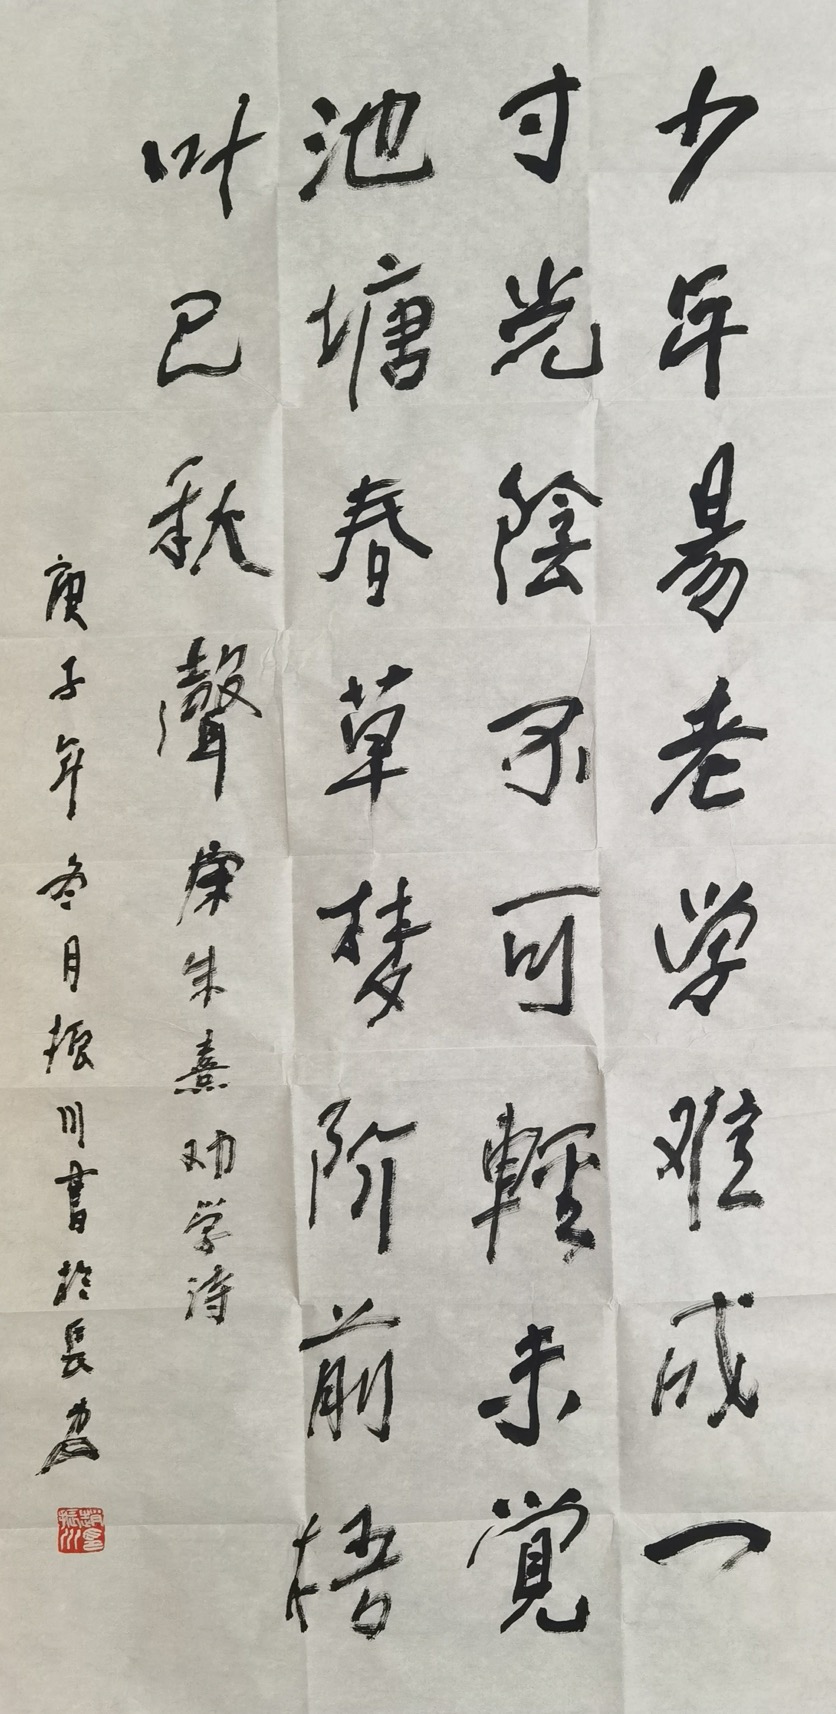 少年易老学难成一
寸光陰不可輕未覚
池塘春草梦阶前梧
叶已秋聲 宋朱熹劝学诗
庚子年冬月振川書於長安